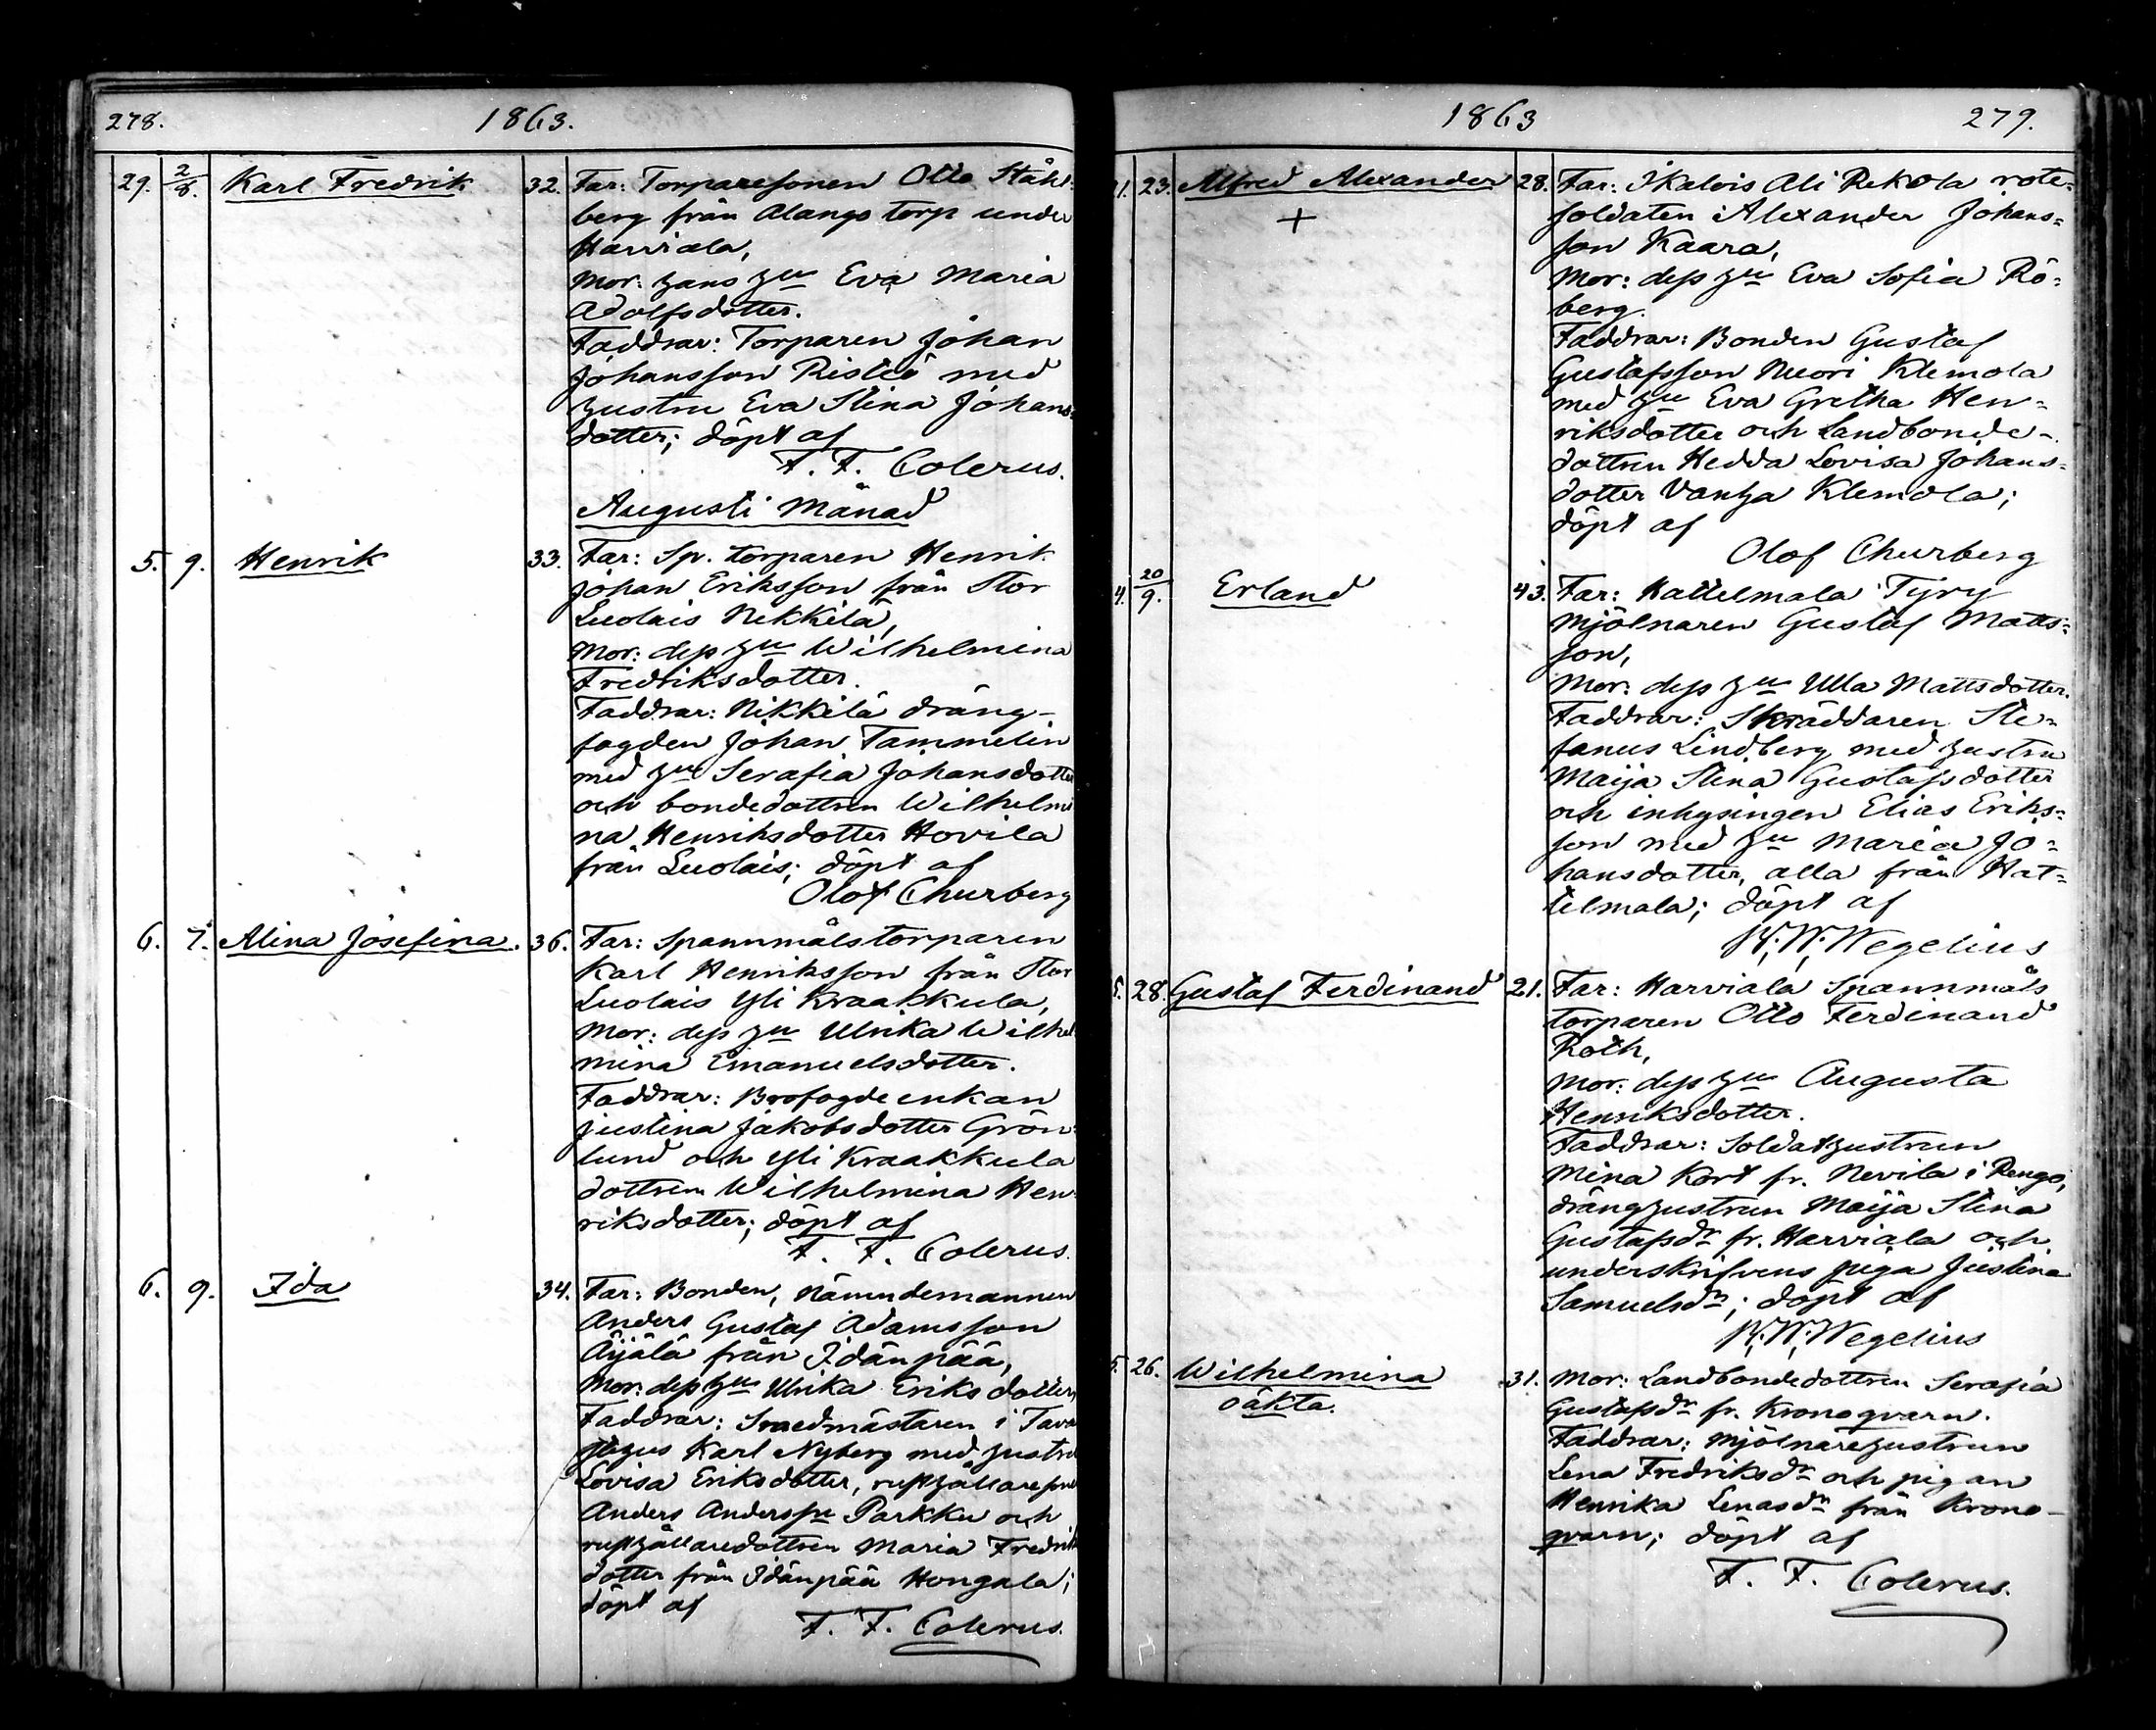 278. 1863.
29. 2/8. Karl Fredrik 32. Far: Torparesonen Otto Ståhl=
berg från Alangs torp under
Harviala,
Mor: hans hu Eva Maria
Adolfsdotter.
Faddrar: Torparen Johan
Johansson Risteo med
hustru Eva Stina Johans=
dotter; döpt af
F. F. Colerus.
Augusti Månad
5. 9. Henrik 33. Far: Sp. torparen Henrik
Johan Eriksson från Stor
Luolais Nikkilä,
Mor: dess hu Wilhelmina
Fredriksdotter.
Faddrar: Nikkilä dräng-
fogden Johan Tammelin
med hu Serafia Johansdotter
och bondedottren Wilhelmi
na Henriksdotter Hovila
från Luolais; döpt af
Olof Churberg
6. 7. Alina Josefina. 36. Far: Spannmålstorparen
Karl Henriksson från Stor
Luolais Yli Kraakkula,
Mor: dess hu Ulrika Wilhel
mina Emanuelsdotter.
Faddrar: Brofogdeenkan
Justina Jakobsdotter Grön=
lund och Yli Kraakkula
dottren Wilhelmina Hen
riksdotter; döpt af
F. F. Colerus.
6. 9. Ida 34. Far: Bonden, Nämndemannen
Anders Gustaf Adamsson
Äijälä från Idänpää,
Mor: dess hu Ulrika Eriksdotter,
Faddrar: Smedmästaren i Tava
stehus Karl Nyberg med hustru
Lovisa Eriksdotter, rusthållareson
Anders Anderss​n Parkku och
rusthållaredottren Maria Fredriks
dotter från Idänpää Hongala;
döpt af
F. F. Colerus.
1863 279.
21. 23. Alfred Alexander 28. Far: Ikalois Ali Rekola rote=
+ soldaten Alexander Johans=
son Kaara,
Mor: dess hu Eva Sofia Rö=
berg.
Faddrar: Bonden Gustaf
Gustafsson Nuori Klemola
med hu Eva Gretha Hen=
riksdotter och Landbonde-
dottren Hedda Lovisa Johans=
dotter Vanha Klemola;
döpt af
Olof Churberg
4. 20/9. Erland 43. Far: Kattelmala Tyry
Mjölnaren Gustaf Matts=
son,
Mor: dess hu Ulla Mattsdotter.
Faddrar: Skräddaren Ste=
fanus Lindberg med hustru
Maija Stina Gustafsdotter
och inhysingen Elias Eriks=
son med hu Maria Jo=
hansdotter, alla från Hat=
telmala; döpt af
W. Wegelius
5. 28. Gustaf Ferdinand 21. Far: Harviala Spannmåls
torparen Otto Ferdinand
Roth,
Mor: dess hu Augusta
Henriksdotter.
Faddrar: Soldathustrun
Mina Kort fr. Nevila i Rengo,
dränghustrun Maija Stina
Gustafsdr fr. Harviala och
underskrifvens piga Justina
Samuelsdr; döpt af
W. Wegelius
5. 26. Wilhelmina 31. Mor: Landbondedottren Serafia
oäkta. Gustafsdr fr. Kronoqvarn.
Faddrar: Mjölnarehustrun
Lena Fredriksdr och pigan
Henrika Lenasdr från Krono-
qvarn; döpt af
F. F. Colerus.